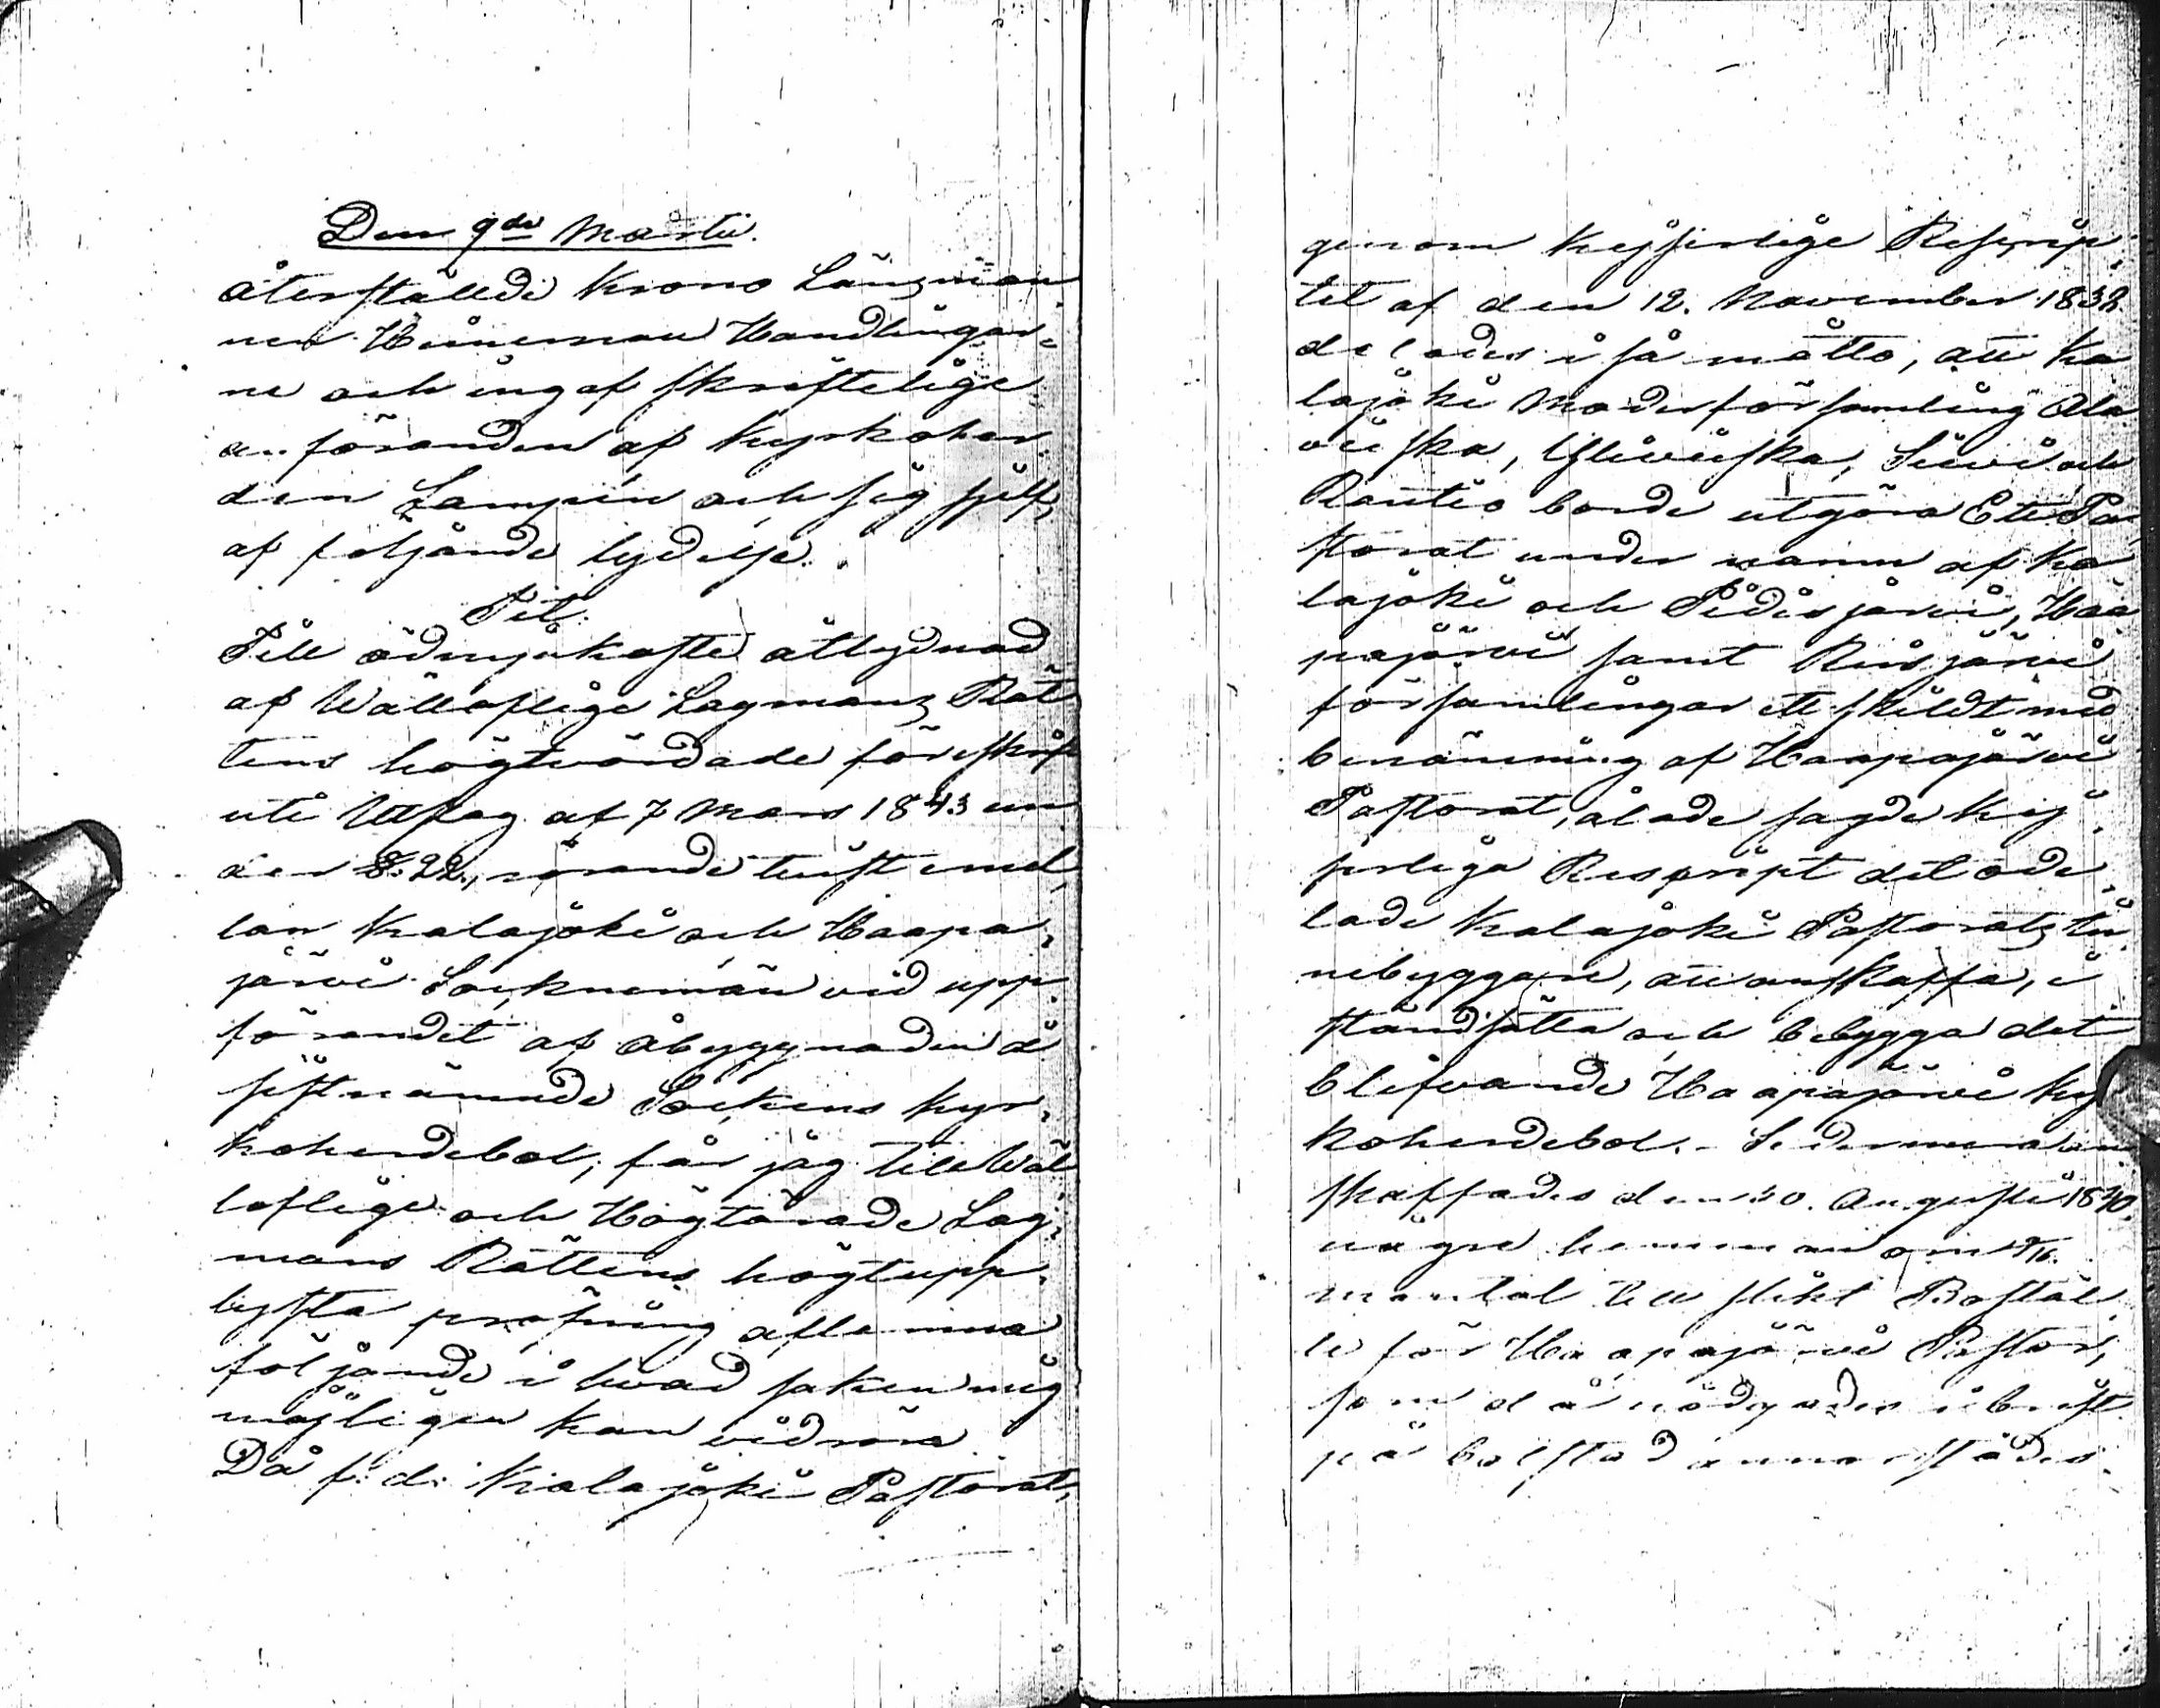 Den 9de Martii.
återställde Krono Länsman-
nen Hinneman Handlingar-
ne och ingaf skriftelige
anföranden af Kyrkoher-
den och sig sjelf,
af följande lydelse.
Tit.
Till ödmjukaste åtlydnad
af Wällaflige Lagmans Rät
tens högtvördade föreskrift
uti Utslag af 7 Mars 1843 un
der §. 22., rörande tvist emel-
lan Kalajoki och Haapa-
järvi Socknemän vid upp-
förandet af åbyggnaden å
sistnämnde Sockens Kyr-
koherdebol, får jag till Wäl
loflige och Högtärade Lag-
mans Rättens högtupp-
lysta pröfning aflemna
följande i hvad saken mig
möjligen kan vidröra
Då f: d: Kalajoki Pastorat,
genom Kejserlige Rescrip-
tet af den 12. November 1838
delades i så måtto, att Ka
lajoki Moderförsamling Ala
vieska, Ylivieska, Sievi och
Rautio borde utgöra Ett Pa
storat under namn af Ka
lajoki och Pidisjärvi, Haa
pajärvi samt Reisjärvi
församlingar ett skildt med
benämning af Haapajärvi
Pastorat, ålade sagde Kej-
serliga Rescript det ode-
lade Kalajoki Pastorats in-
nebyggare, att anskaffa, i
ståndsätta och bebygga det
blifvande Haapajärvi Kyr
koherdebol. - Sedermera an
skaffades den 30. Augusti 1840,
några hemman om
mantal till slikt Boställ
le för Haapajärvi Pastor,
som då nödgades i brist
på bolstad annorstädes